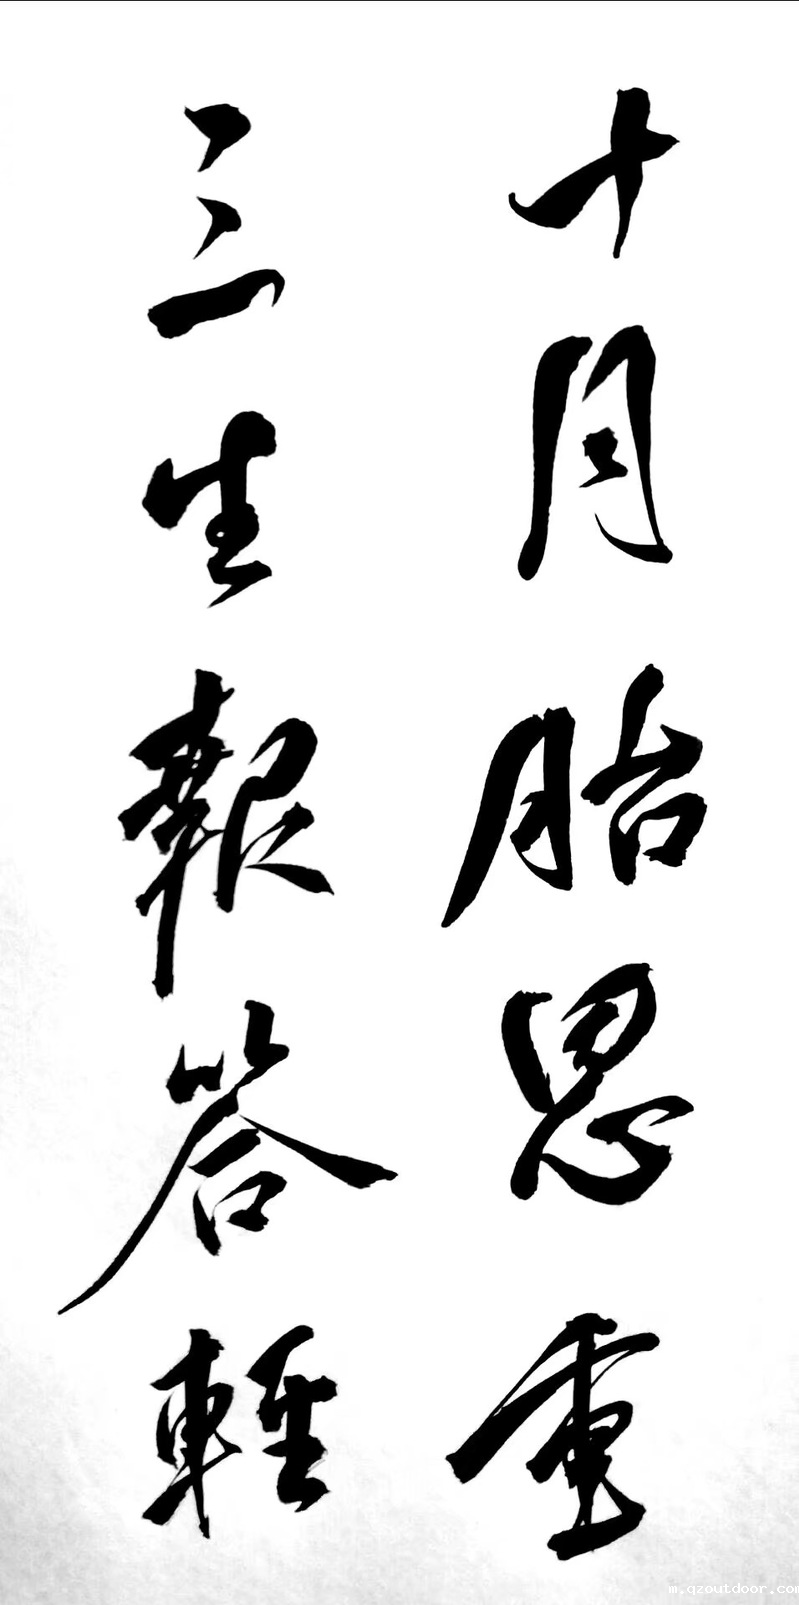 十月胎恩重
三生報答輕
m.qzoutdoor.com